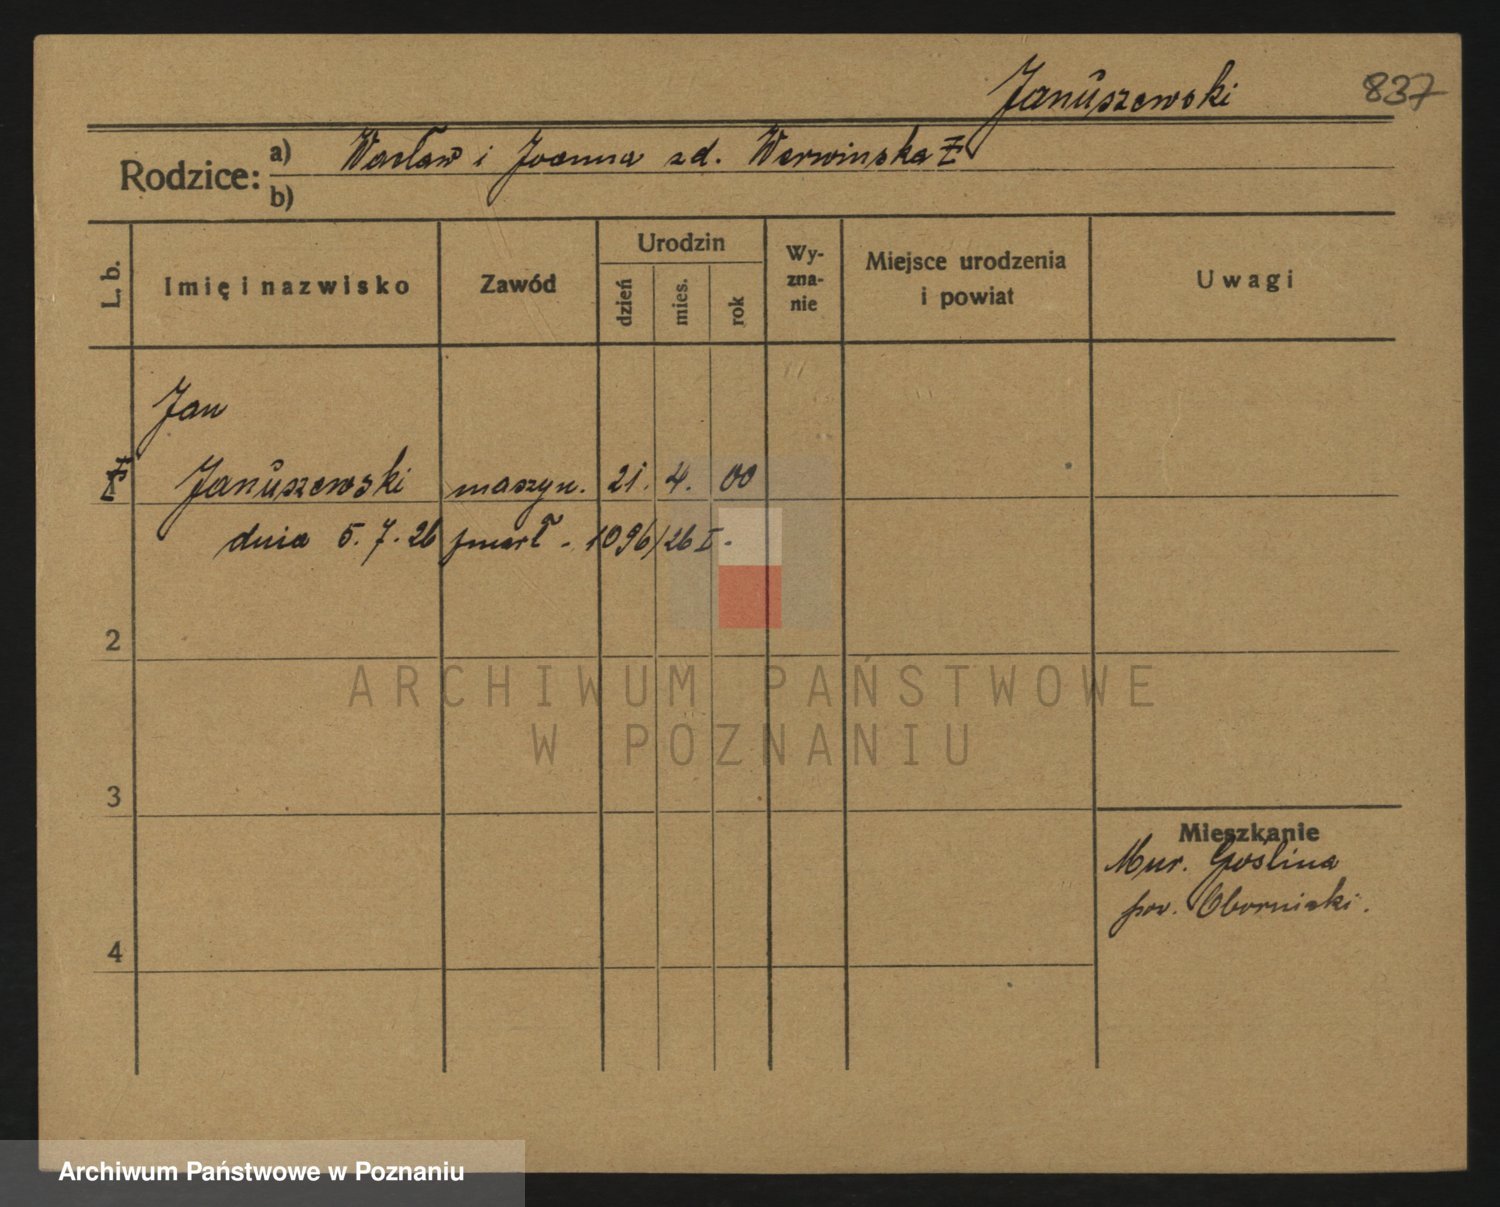 Januszewski 837
Rodzice: a) Wacław i Joanna zd. Werwińska
b)
L. b. Imię i nazwisko Zawód Urodzin dzień mies. rok Wy-zna-nie Miejsce urodzenia i powiat Uwagi
Jan
Januszewski maszyn. 21. 4. 00
dnia 5. 7. 26 zmarł - 1096/26 I -
2
ARCHIWUM PAŃSTWOWE
W POZNANIU
3
Mieszkanie
Mur. Goślina
pow. Obornicki.
4
Archiwum Państwowe w Poznaniu